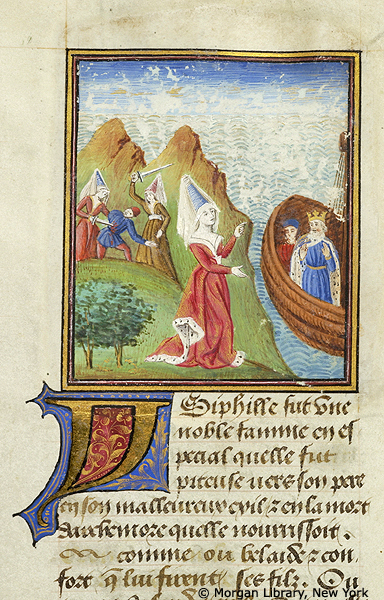 YSiphille fut vne
noble famme en es
pecial quelle fut
piteuse vers son pere
en son malleureux exil z en la mort
darchemore quelle nourrissoit.
comme ou belaide z con
fort q̄ lui firent ses filz. Ou
© Morgan Library, New York